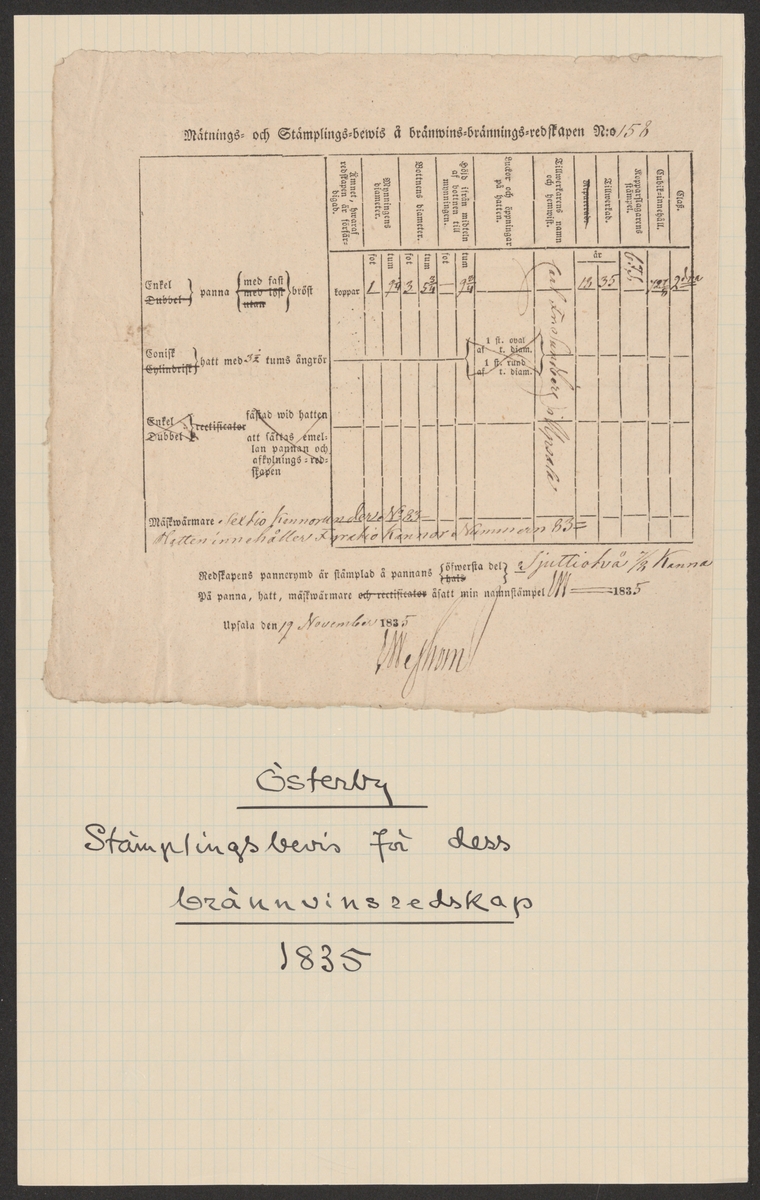 Mätnings- och Stämplings-bewis å bränwins-brännings-redskapen N:o 158
Ämnet, hwaraf redskapen är förfärdigad.
Mynningens diameter.
Bottnens diameter.
Höjd ifrån midteln af bottnen till mynningen.
Luckor och öppningar på hatten.
Tillwerkarens namn och hemwist.
Reparerad.
Tillwerkad.
Kopparslagarens stämpel.
Cubik-innehåll.
Class.
fot tum fot tum fot tum år
Enkel
Dubbel } panna { med fast
med löst
utan } bröst
koppar 1 9¼ 3 5¾ — 9¾ 13 35 72⅞ 2dra
i Upsala
Conisk
Cylindrisk } hatt med tums ångrör
1 st. oval
af t. diam.
1 st. rund
af t. diam.
Enkel
Dubbel } rectificator
fästad wid hatten
att sättas emel-
lan pannan och
afkylnings-red-
skapen
Mäskwärmare Settio Kannor under No 83
Hatten innehåller Fyratio Kannor Nummern 83=
Redskapens pannerymd är stämplad å pannans { öfwersta del
hals } a Sjuttiotvå ⅞ Kanna
På panna, hatt, mäskwärmare och rectificator åsatt min namnstämpel W 1835
Upsala den 19 November 1835
Österby
Stämplingsbevis för dess
brännvinsredskap
1835